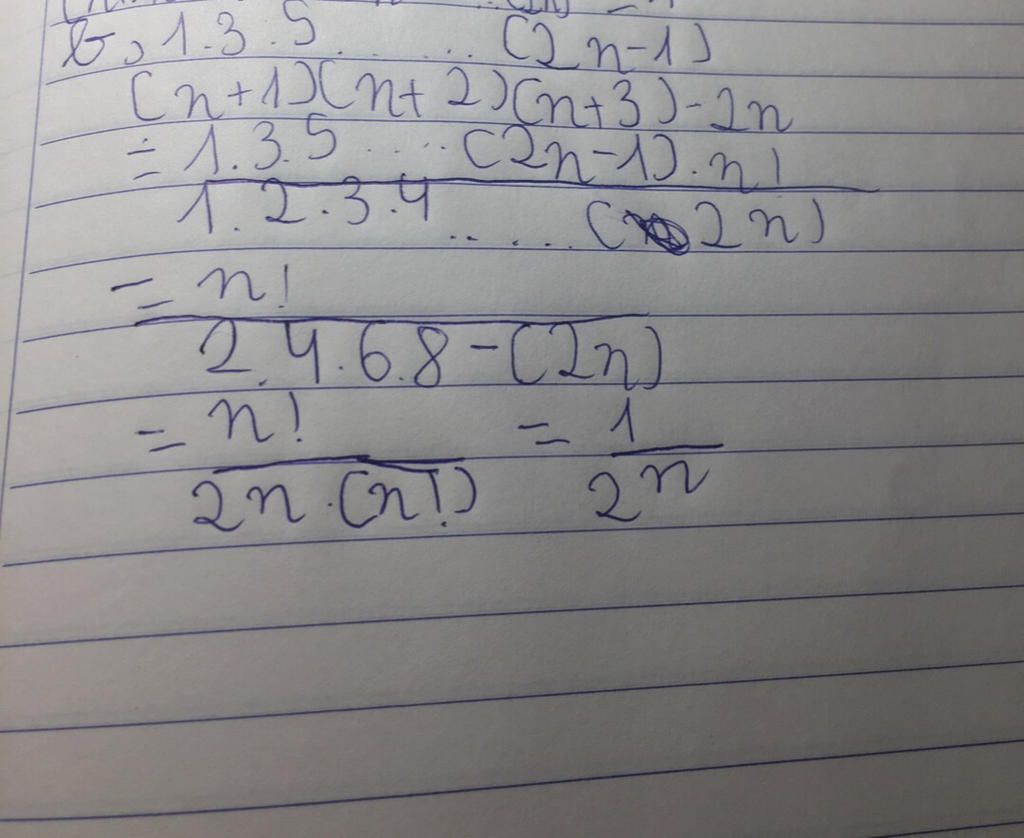 b, 1.3.5..... (2n-1)
(n+1)(n+2)(n+3)-2n
= 1.3.5.... (2n-1).n!
1.2.3.4 ..... (2n)
= n!
2.4.6.8-(2n)
= n! = 1
2n.(n!) 2n